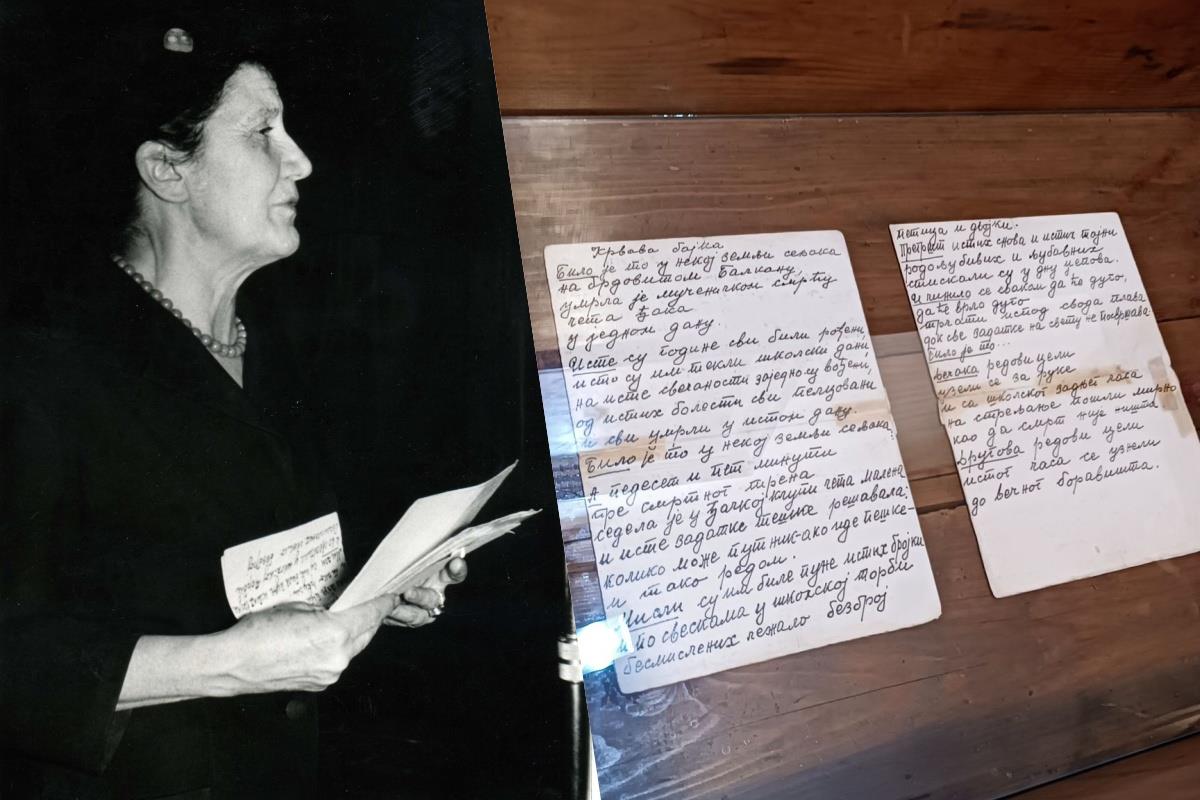 Крвава бајка
Било је то у некој земљи сељака
на брдовитом Балкану,
умрла је мученичком смрћу
чета ђака
у једном дану.
Исте су године сви били рођени,
исто су им текли школски дани,
на исте свечаности заједно су вођени,
од истих болести сви пелцовани
и сви умрли у истом дану.
Било је то у некој земљи сељака.
А педесет и пет минути
пре смртног трена
седела је у ђачкој клупи чета малена
и исте задатке тешке решавала:
колико може путник ако иде пешке –
и тако редом.
Мисли су им биле пуне истих бројки
и по свескама у школској торби
бесмислених лежало безброј
петица и двојки.
Прегршт истих снова и истих тајни
родољубивих и љубавних
стискали су у дну џепова.
И чинило се сваком да ће дуго,
да ће врло дуго
трчати испод свода плава
док све задатке на свету не посвршава.
Било је то...
Дечака редови цели
узели се за руке
и са школског задњег часа
на стрељање пошли мирно
као да смрт није ништа
Другова редови цели
истог часа се узнели
до вечног боравишта.